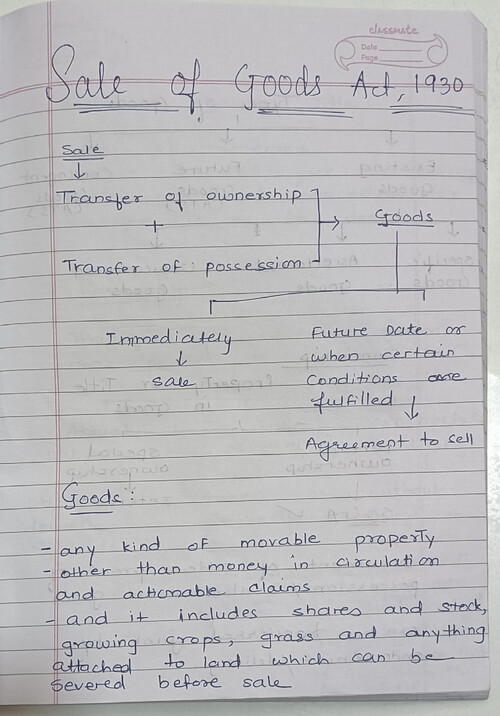 classmate
Date
Page
Sale of Goods Act, 1930
Sale
↓
Transfer of ownership
+
→ Goods
Transfer of possession
Immediately
↓
sale
Future Date or
when certain
conditions are
fulfilled ↓
Agreement to sell
Goods:
- any kind of movable property
- other than money in circulation
and actionable claims
- and it includes shares and stock,
growing crops, grass and anything
attached to land which can be
severed before sale